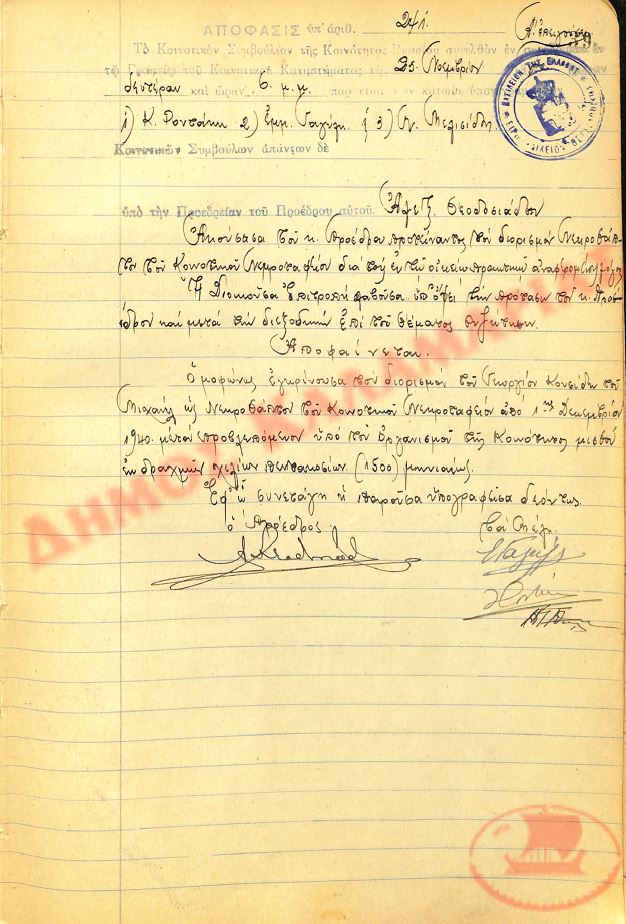 ΑΠΟΦΑΣΙΣ ὑπ' ἀριθ. 241
Τὸ Κοινοτικὸν Συμβούλιον τῆς Κοινότητος συνελθὸν ἐν
τῷ Γραφείῳ τοῦ Κοινοτικοῦ Καταστήματος τὴν 25 Νοεμβρίου
Δευτέραν καὶ ὥραν 6 μ.μ.
1) Κ. 2) Ἐμμ. & 3)
Κοινοτικῶν Συμβούλων ἁπάντων δὲ
ὑπὸ τὴν Προεδρείαν τοῦ Προέδρου αὐτοῦ. Θεοδοσιάδου
Ἀκούσασα τοῦ κ. Προέδρου προτείναντος τὸν διορισμὸν Νεκροθάπ
του τοῦ Κοινοτικοῦ Νεκροταφείου διὰ τοὺς ἐν τῷ οἰκείῳ πρακτικῷ ἀναφερομένους λόγους
Ἡ Διοικοῦσα Ἐπιτροπὴ λαβοῦσα ὑπ' ὄψει τὴν πρότασιν τοῦ κ. Προέ
δρου καὶ μετὰ τὴν διεξοδικὴν ἐπὶ τοῦ θέματος συζήτησιν.
Ἀποφαίνεται.
Ὁμοφώνως ἐγκρίνουσα τὸν διορισμὸν τοῦ Γεωργίου τοῦ
Μιχαὴλ ὡς Νεκροθάπτου τοῦ Κοινοτικοῦ Νεκροταφείου ἀπὸ 1ης Δεκεμβρίου
1940. μὲ τὸν προβλεπόμενον ὑπὸ τοῦ Ὀργανισμοῦ τῆς Κοινότητος μισθὸν
ἐκ δραχμῶν χιλίων πεντακοσίων (1500) μηνιαίως.
Ἐφ' ᾧ συνετάγη ἡ παροῦσα ὑπογραφεῖσα δεόντως.
ὁ Πρόεδρος Τὰ Μέλη
ΔΗΜΟΥ ΚΑΛΑΜΑΡΙΑΣ